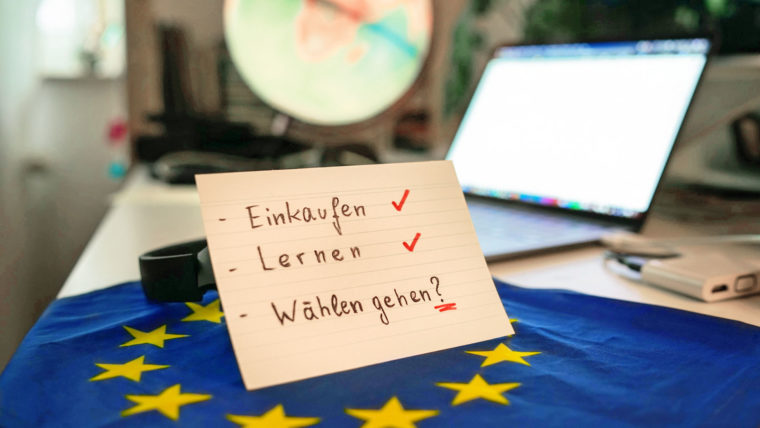 - Einkaufen ✓
- Lernen ✓
- Wählen gehen?